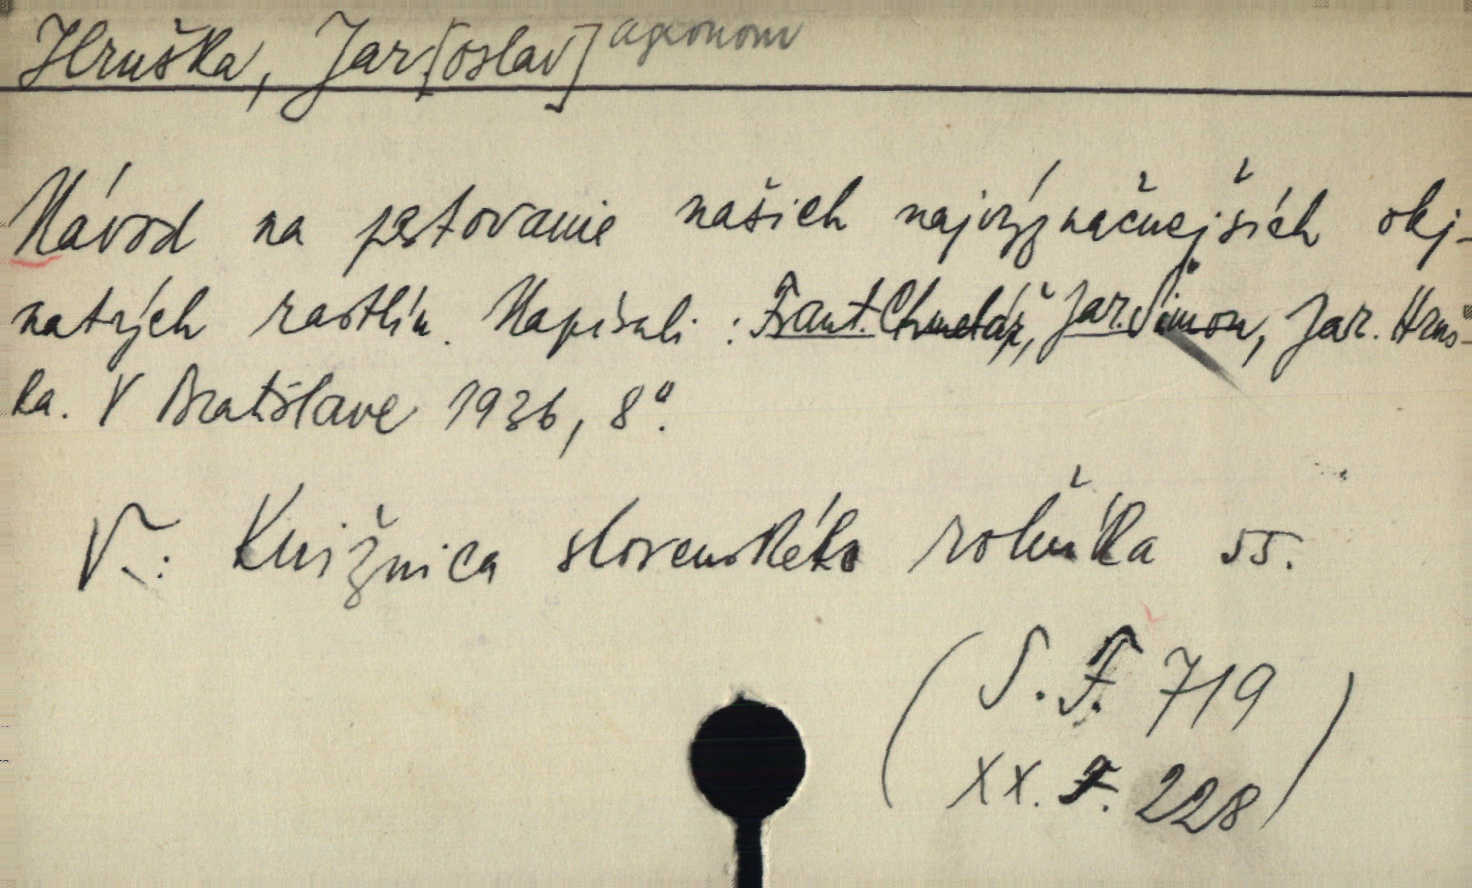 Hruška, Jar[oslav] agronom
Návod na pestovanie našich najvýznačnejších olej-
natých rastlín. Napísali: Frant. Chmelář, Jar. Šimon, Jar. Hruš-
ka. V Bratislave 1936, 8°.
V.: Knižnica slovenského roľníka 55.
(S. F. 719
XX. F. 228)